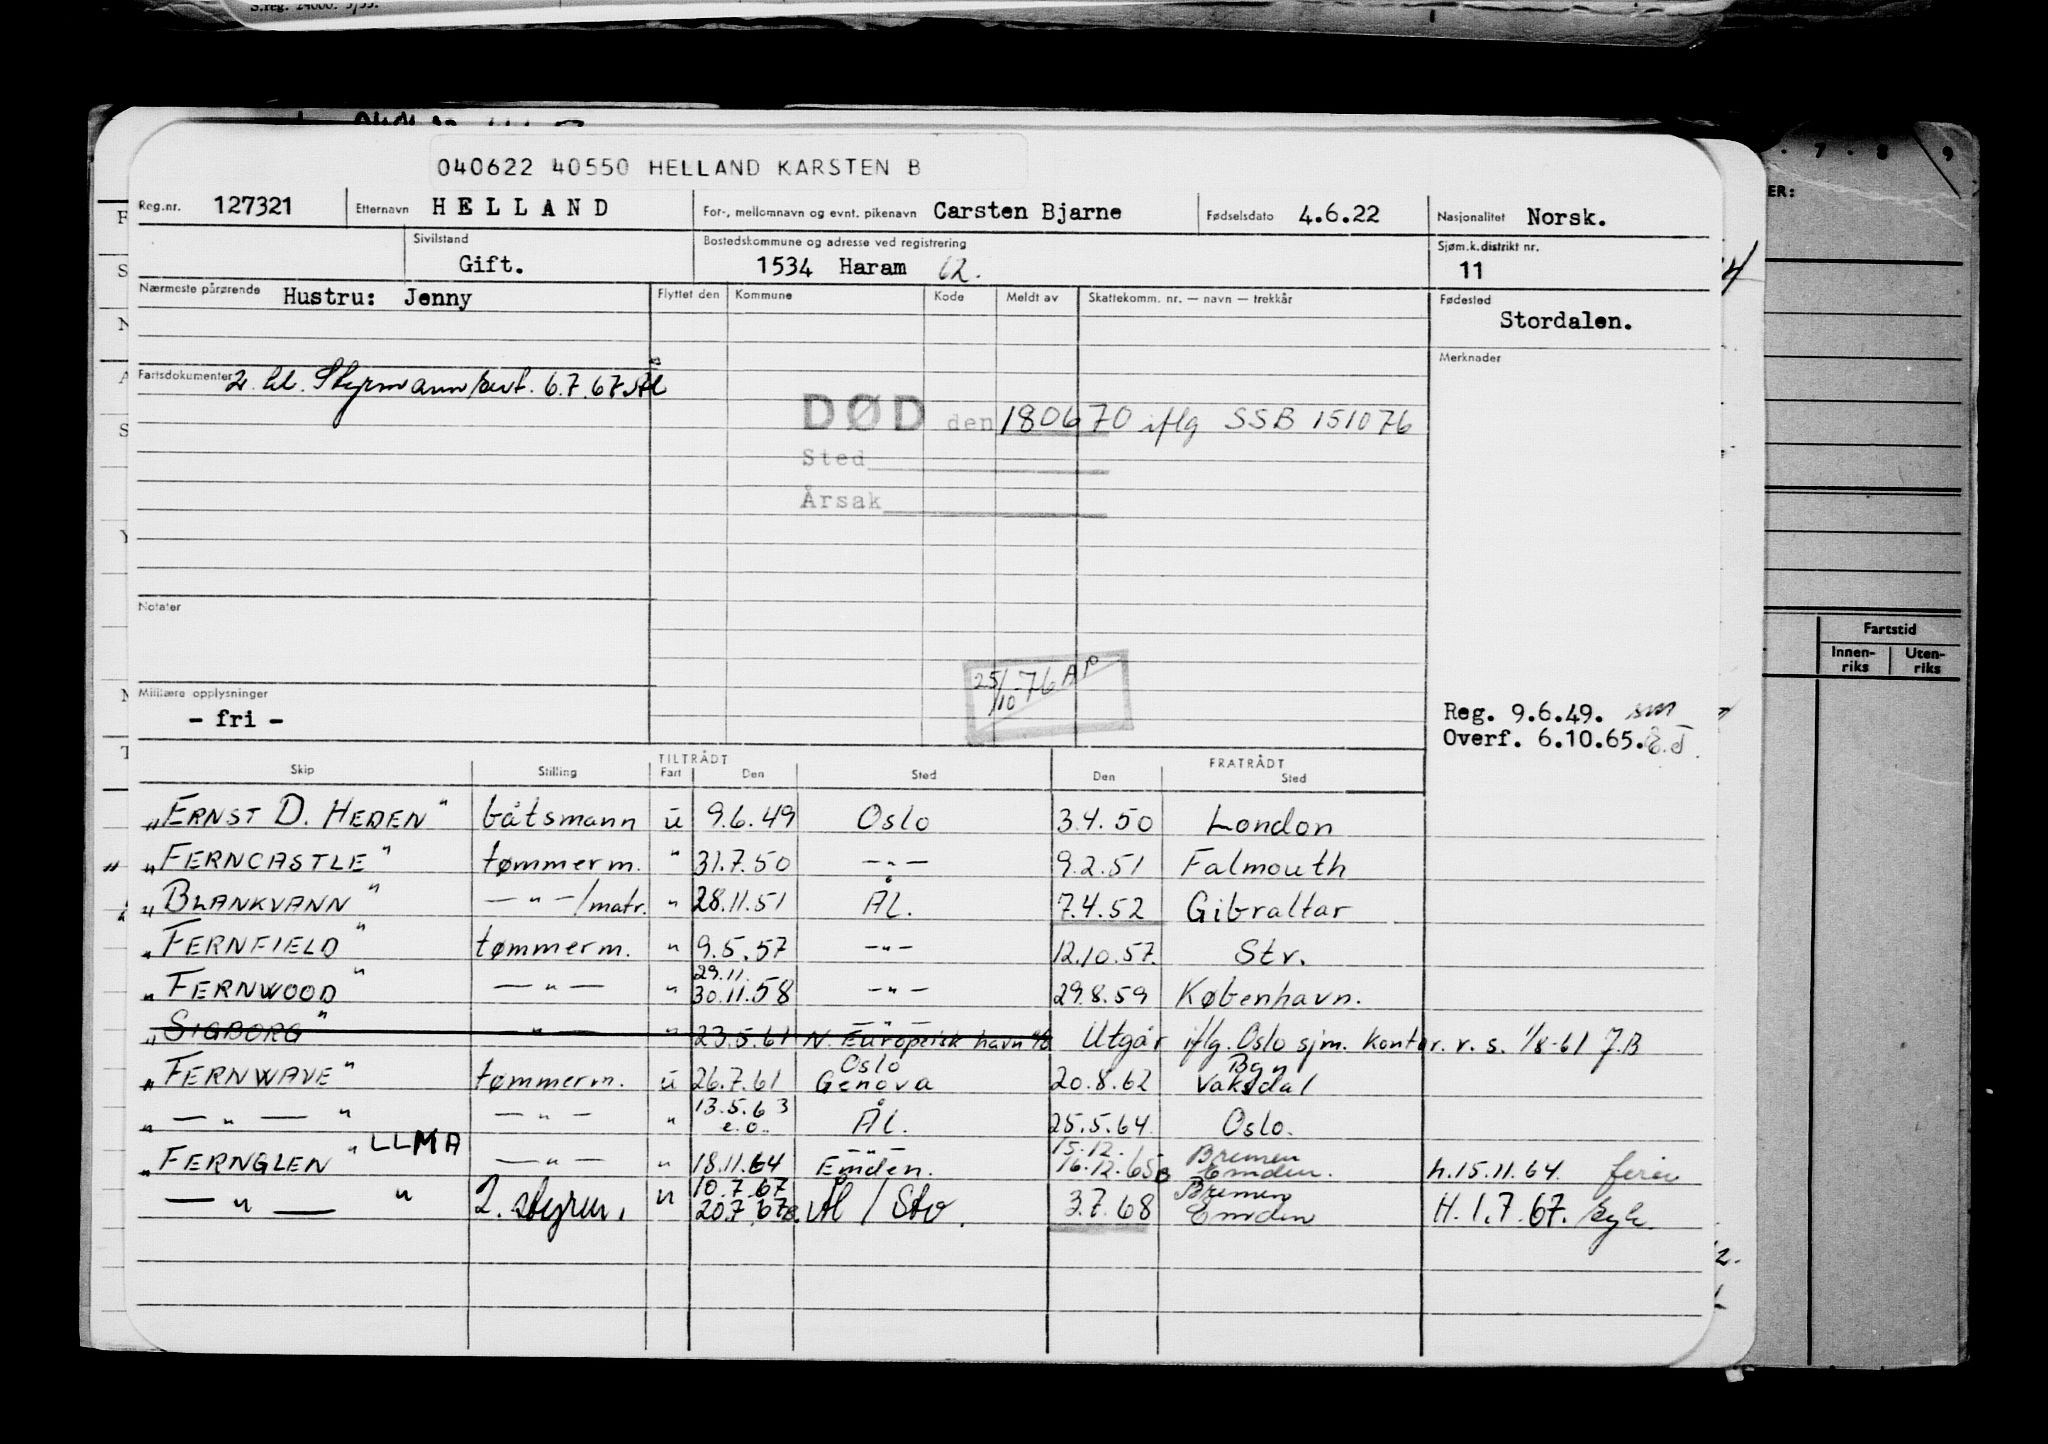 S.reg. 24000. 3/55.
040622 40550 HELLAND KARSTEN B
Reg.nr. 127321 Etternavn HELLAND For-, mellomnavn og evnt. pikenavn Carsten Bjarne Fødselsdato 4.6.22 Nasjonalitet Norsk.
Sivilstand Gift. Bostedskommune og adresse ved registrering 1534 Haram 62. Sjøm.k.distrikt nr. 11
Nærmeste pårørende Hustru: Jenny Flyttet den Kommune Kode Meldt av Skattekomm. nr. — navn — trekkår Fødested
Stordalen.
Merknader
Fartsdokumenter 2. kl. Styrmann/sert. 6.7.67 Ål
DØD den 180670 iflg SSB 151076
Sted
Årsak
Notater
25/10-76 AP
Militære opplysninger
- fri -
Reg. 9.6.49. sm
Overf. 6.10.65.
Skip Stilling TILTRÅDT Fart Den Sted FRATRÅDT Den Sted
"ERNST D. HEDEN" båtsmann u 9.6.49 Oslo 3.4.50 London
"FERNCASTLE" tømmerm. " 31.7.50 — " — 9.2.51 Falmouth
"BLANKVANN" — " —/matr. " 28.11.51 Ål. 7.4.52 Gibraltar
"FERNFIELD" tømmerm. " 9.5.57 — " — 12.10.57. Str.
29.11.
"FERNWOOD" — " — " 30.11.58 — " — 29.8.59 København.
"SIGBORG" — " — " 23.5.61 N. Europeisk havn Utgår iflg. Oslo sjm. kontor. r. s. 1/8-61 J.B
Oslo Bgn
"FERNWAVE" tømmerm. u 26.7.61 Genova 20.8.62 Vaksdal
13.5.63
" — " — " — " — " e.o. Ål. 25.5.64 Oslo.
— " — 15.12. Bremen
"FERNGLEN" LLMA — " — " 18.11.64 Emden. 16.12.65 Emden. h.15.11.64 ferie
10.7.67 Bremen
— " — " 2. styrm. " 20.7.67 Ål / Sto. 3.7.68 Emden H. 1.7.67. syk.
7 . 8 . 9
ER:
Fartstid
Innenriks Utenriks